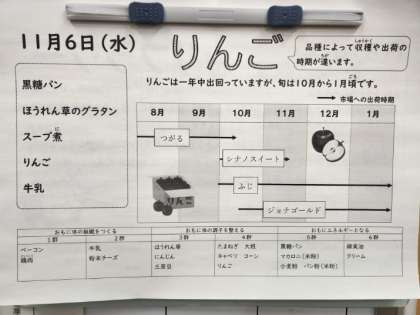 11月6日(水)
りんご
品種によって収穫や出荷の
時期が違います。
黒糖パン
ほうれん草のグラタン
スープ煮
りんご
牛乳
りんごは一年中出回っていますが、旬は10月から1月頃です。
→市場への出荷時期
8月 9月 10月 11月 12月 1月
つがる
シナノスイート
ふじ
ジョナゴールド
りんご
おもに体の組織をつくる おもに体の調子を整える おもにエネルギーとなる
1群 2群 3群 4群 5群 6群
ベーコン 牛乳 ほうれん草 たまねぎ 大根 黒糖パン
鶏肉 粉末チーズ にんじん キャベツ コーン マカロニ(米粉) クリーム
りんご 小麦粉 パン粉(米粉)